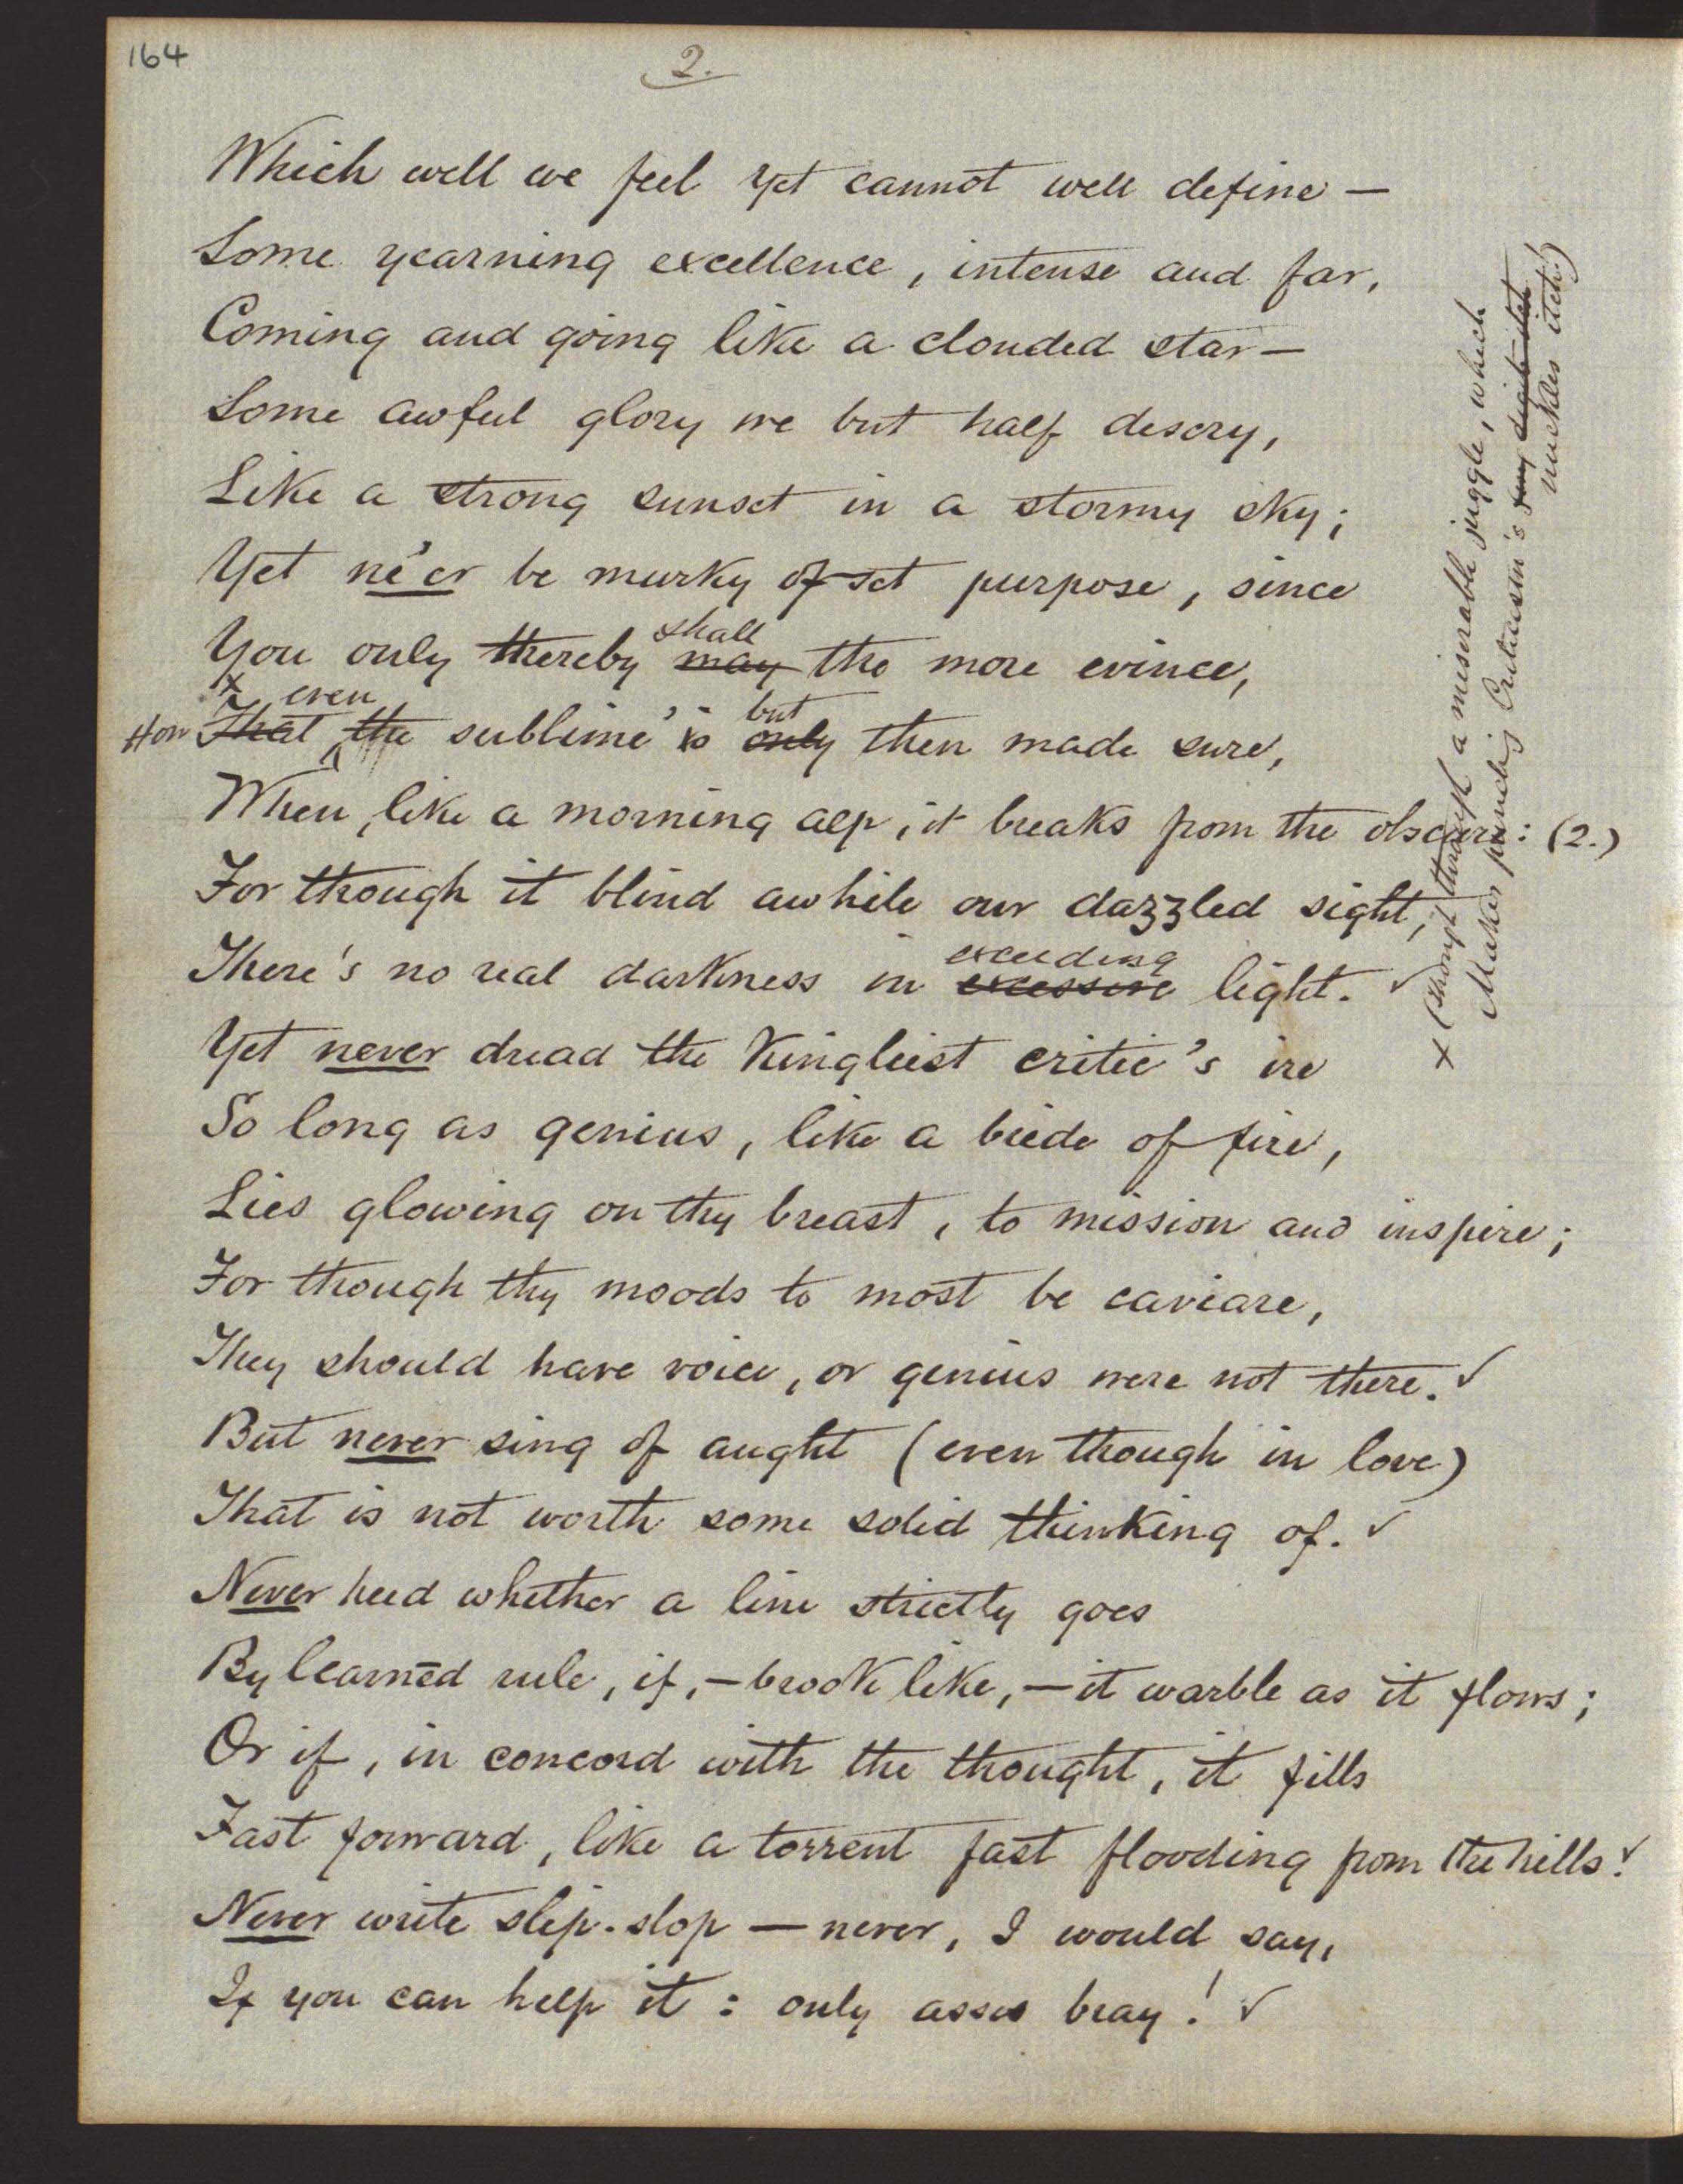 164
2.
Which well we feel yet cannot well define —
Some yearning excellence, intense and far,
Coming and going like a clouded star —
Some awful glory we but half descry,
Like a strong sunset in a stormy sky;
Yet ne'er be murky of set purpose, since
shall
You only thereby may the more evince,
x even but
How That the sublime's is only then made sure,
When, like a morning alp, it breaks from the obscure: (2.)
For though it blind awhile our dazzled sight,
exceeding
There's no real darkness in excessive light. ✓
Yet never dread the Kingliest critic's ire
So long as genius, like a bride of fire,
Lies glowing on thy breast, to mission and inspire;
For though thy moods to most be caviare,
They should have voice, or genius were not there. ✓
But never sing of aught (even though in love)
That is not worth some solid thinking of. ✓
Never heed whether a line strictly goes
By learnēd rule, if, — brook like, — it warble as it flows;
Or if, in concord with the thought, it fills
Fast forward, like a torrent fast flooding from the hills. ✓
Never write slip-slop — never, I would say,
If you can help it: only asses bray! ✓
x (though through a miserable juggle, which
Makes punching Criticism's
knuckles itch!)